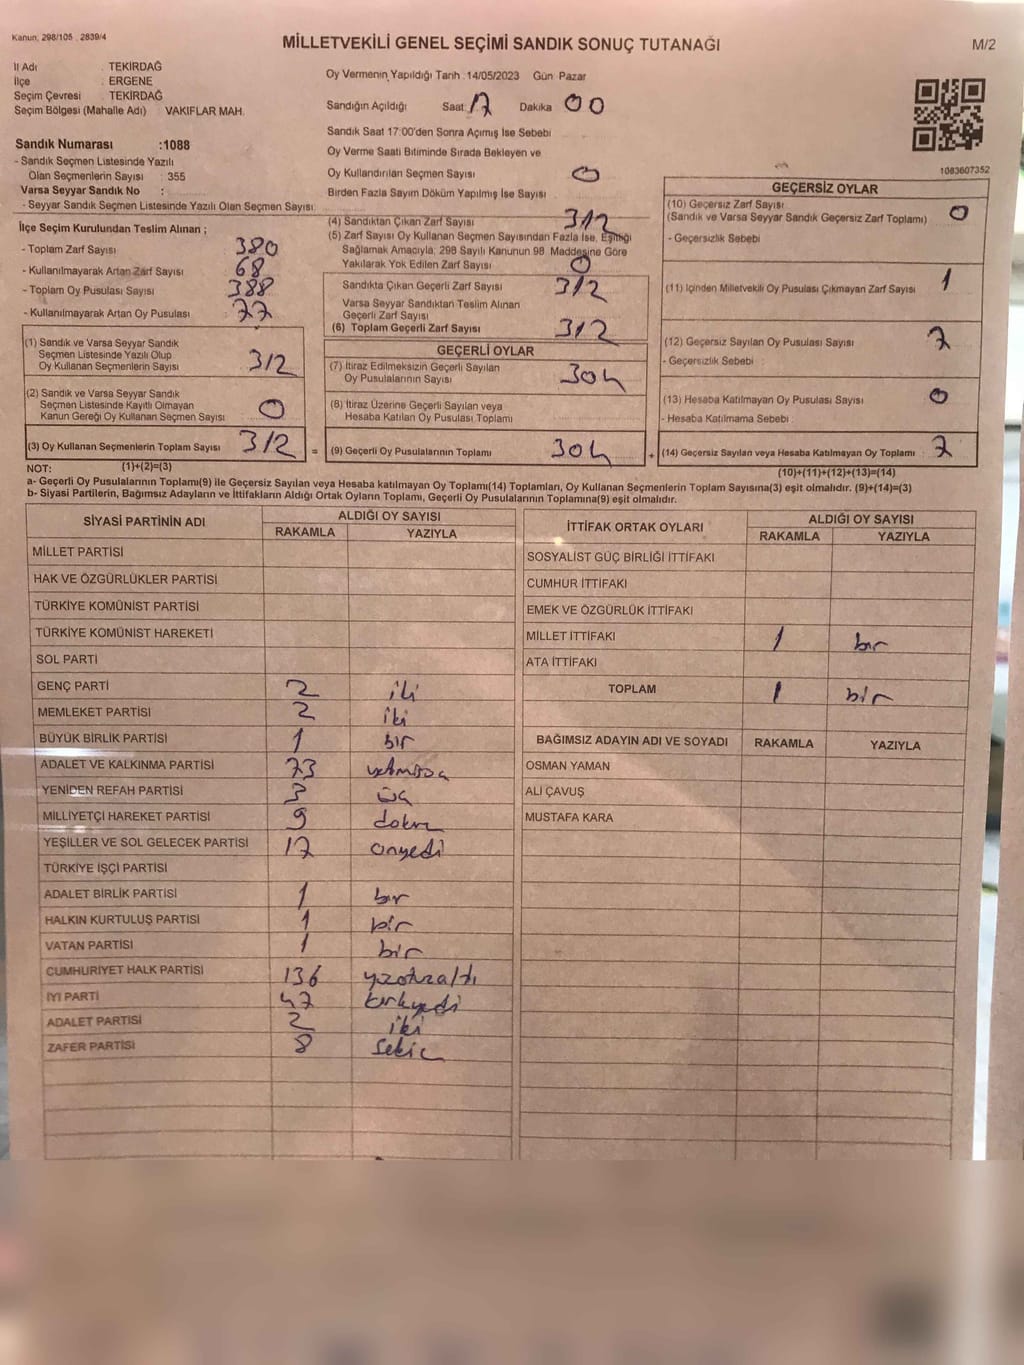 Kanun; 298/105 , 2839/4
MİLLETVEKİLİ GENEL SEÇİMİ SANDIK SONUÇ TUTANAĞI
M/2
İl Adı : TEKİRDAĞ
İlçe : ERGENE
Seçim Çevresi : TEKİRDAĞ
Seçim Bölgesi (Mahalle Adı) : VAKIFLAR MAH.
Sandık Numarası :1088
- Sandık Seçmen Listesinde Yazılı
Olan Seçmenlerin Sayısı : 355
Varsa Seyyar Sandık No :
- Seyyar Sandık Seçmen Listesinde Yazılı Olan Seçmen Sayısı:
Oy Vermenin Yapıldığı Tarih :14/05/2023 Gün: Pazar
Sandığın Açıldığı Saat: 17 Dakika: 00
Sandık Saat 17:00'den Sonra Açımış İse Sebebi
Oy Verme Saati Bitiminde Sırada Bekleyen ve
Oy Kullandırılan Seçmen Sayısı : 0
Birden Fazla Sayım Döküm Yapılmış İse Sayısı
1083607352
İlçe Seçim Kurulundan Teslim Alınan ;
- Toplam Zarf Sayısı : 380
- Kullanılmayarak Artan Zarf Sayısı : 68
- Toplam Oy Pusulası Sayısı : 388
- Kullanılmayarak Artan Oy Pusulası : 77
(1) Sandık ve Varsa Seyyar Sandık
Seçmen Listesinde Yazılı Olup
Oy Kullanan Seçmenlerin Sayısı : 312
(2) Sandık ve Varsa Seyyar Sandık
Seçmen Listesinde Kayıtlı Olmayan
Kanun Gereği Oy Kullanan Seçmen Sayısı : 0
(3) Oy Kullanan Seçmenlerin Toplam Sayısı : 312
(4) Sandıktan Çıkan Zarf Sayısı : 312
(5) Zarf Sayısı Oy Kullanan Seçmen Sayısından Fazla İse, Eşitliği
Sağlamak Amacıyla; 298 Sayılı Kanunun 98. Maddesine Göre
Yakılarak Yok Edilen Zarf Sayısı : 0
Sandıkta Çıkan Geçerli Zarf Sayısı : 312
Varsa Seyyar Sandıktan Teslim Alınan
Geçerli Zarf Sayısı :
(6) Toplam Geçerli Zarf Sayısı : 312
GEÇERLİ OYLAR
(7) İtiraz Edilmeksizin Geçerli Sayılan
Oy Pusulalarının Sayısı : 304
(8) İtiraz Üzerine Geçerli Sayılan veya
Hesaba Katılan Oy Pusulası Toplamı :
= (9) Geçerli Oy Pusulalarının Toplamı : 304
GEÇERSİZ OYLAR
(10) Geçersiz Zarf Sayısı : 0
(Sandık ve Varsa Seyyar Sandık Geçersiz Zarf Toplamı)
- Geçersizlik Sebebi :
(11) İçinden Milletvekili Oy Pusulası Çıkmayan Zarf Sayısı : 1
(12) Geçersiz Sayılan Oy Pusulası Sayısı : 7
- Geçersizlik Sebebi :
(13) Hesaba Katılmayan Oy Pusulası Sayısı : 0
- Hesaba Katılmama Sebebi :
+ (14) Geçersiz Sayılan veya Hesaba Katılmayan Oy Toplamı : 7
NOT: (1)+(2)=(3)
(10)+(11)+(12)+(13)=(14)
a- Geçerli Oy Pusulalarının Toplamı(9) ile Geçersiz Sayılan veya Hesaba katılmayan Oy Toplamı(14) Toplamları, Oy Kullanan Seçmenlerin Toplam Sayısına(3) eşit olmalıdır. (9)+(14)=(3)
b- Siyasi Partilerin, Bağımsız Adayların ve İttifakların Aldığı Ortak Oyların Toplamı, Geçerli Oy Pusulalarının Toplamına(9) eşit olmalıdır.
SİYASİ PARTİNİN ADI ALDIĞI OY SAYISI
RAKAMLA YAZIYLA
MİLLET PARTİSİ
HAK VE ÖZGÜRLÜKLER PARTİSİ
TÜRKİYE KOMÜNİST PARTİSİ
TÜRKİYE KOMÜNİST HAREKETİ
SOL PARTİ
GENÇ PARTİ 2 iki
MEMLEKET PARTİSİ 2 iki
BÜYÜK BİRLİK PARTİSİ 1 bir
ADALET VE KALKINMA PARTİSİ 73
YENİDEN REFAH PARTİSİ 3 üç
MİLLİYETÇİ HAREKET PARTİSİ 9 dokuz
YEŞİLLER VE SOL GELECEK PARTİSİ 17 onyedi
TÜRKİYE İŞÇİ PARTİSİ
ADALET BİRLİK PARTİSİ 1 bir
HALKIN KURTULUŞ PARTİSİ 1 bir
VATAN PARTİSİ 1 bir
CUMHURİYET HALK PARTİSİ 136 yüzotuzaltı
İYİ PARTİ 47 kırkyedi
ADALET PARTİSİ 2 iki
ZAFER PARTİSİ 8 sekiz
İTTİFAK ORTAK OYLARI ALDIĞI OY SAYISI
RAKAMLA YAZIYLA
SOSYALİST GÜÇ BİRLİĞİ İTTİFAKI
CUMHUR İTTİFAKI
EMEK VE ÖZGÜRLÜK İTTİFAKI
MİLLET İTTİFAKI 1 bir
ATA İTTİFAKI
TOPLAM 1 bir
BAĞIMSIZ ADAYIN ADI VE SOYADI RAKAMLA YAZIYLA
OSMAN YAMAN
ALİ ÇAVUŞ
MUSTAFA KARA